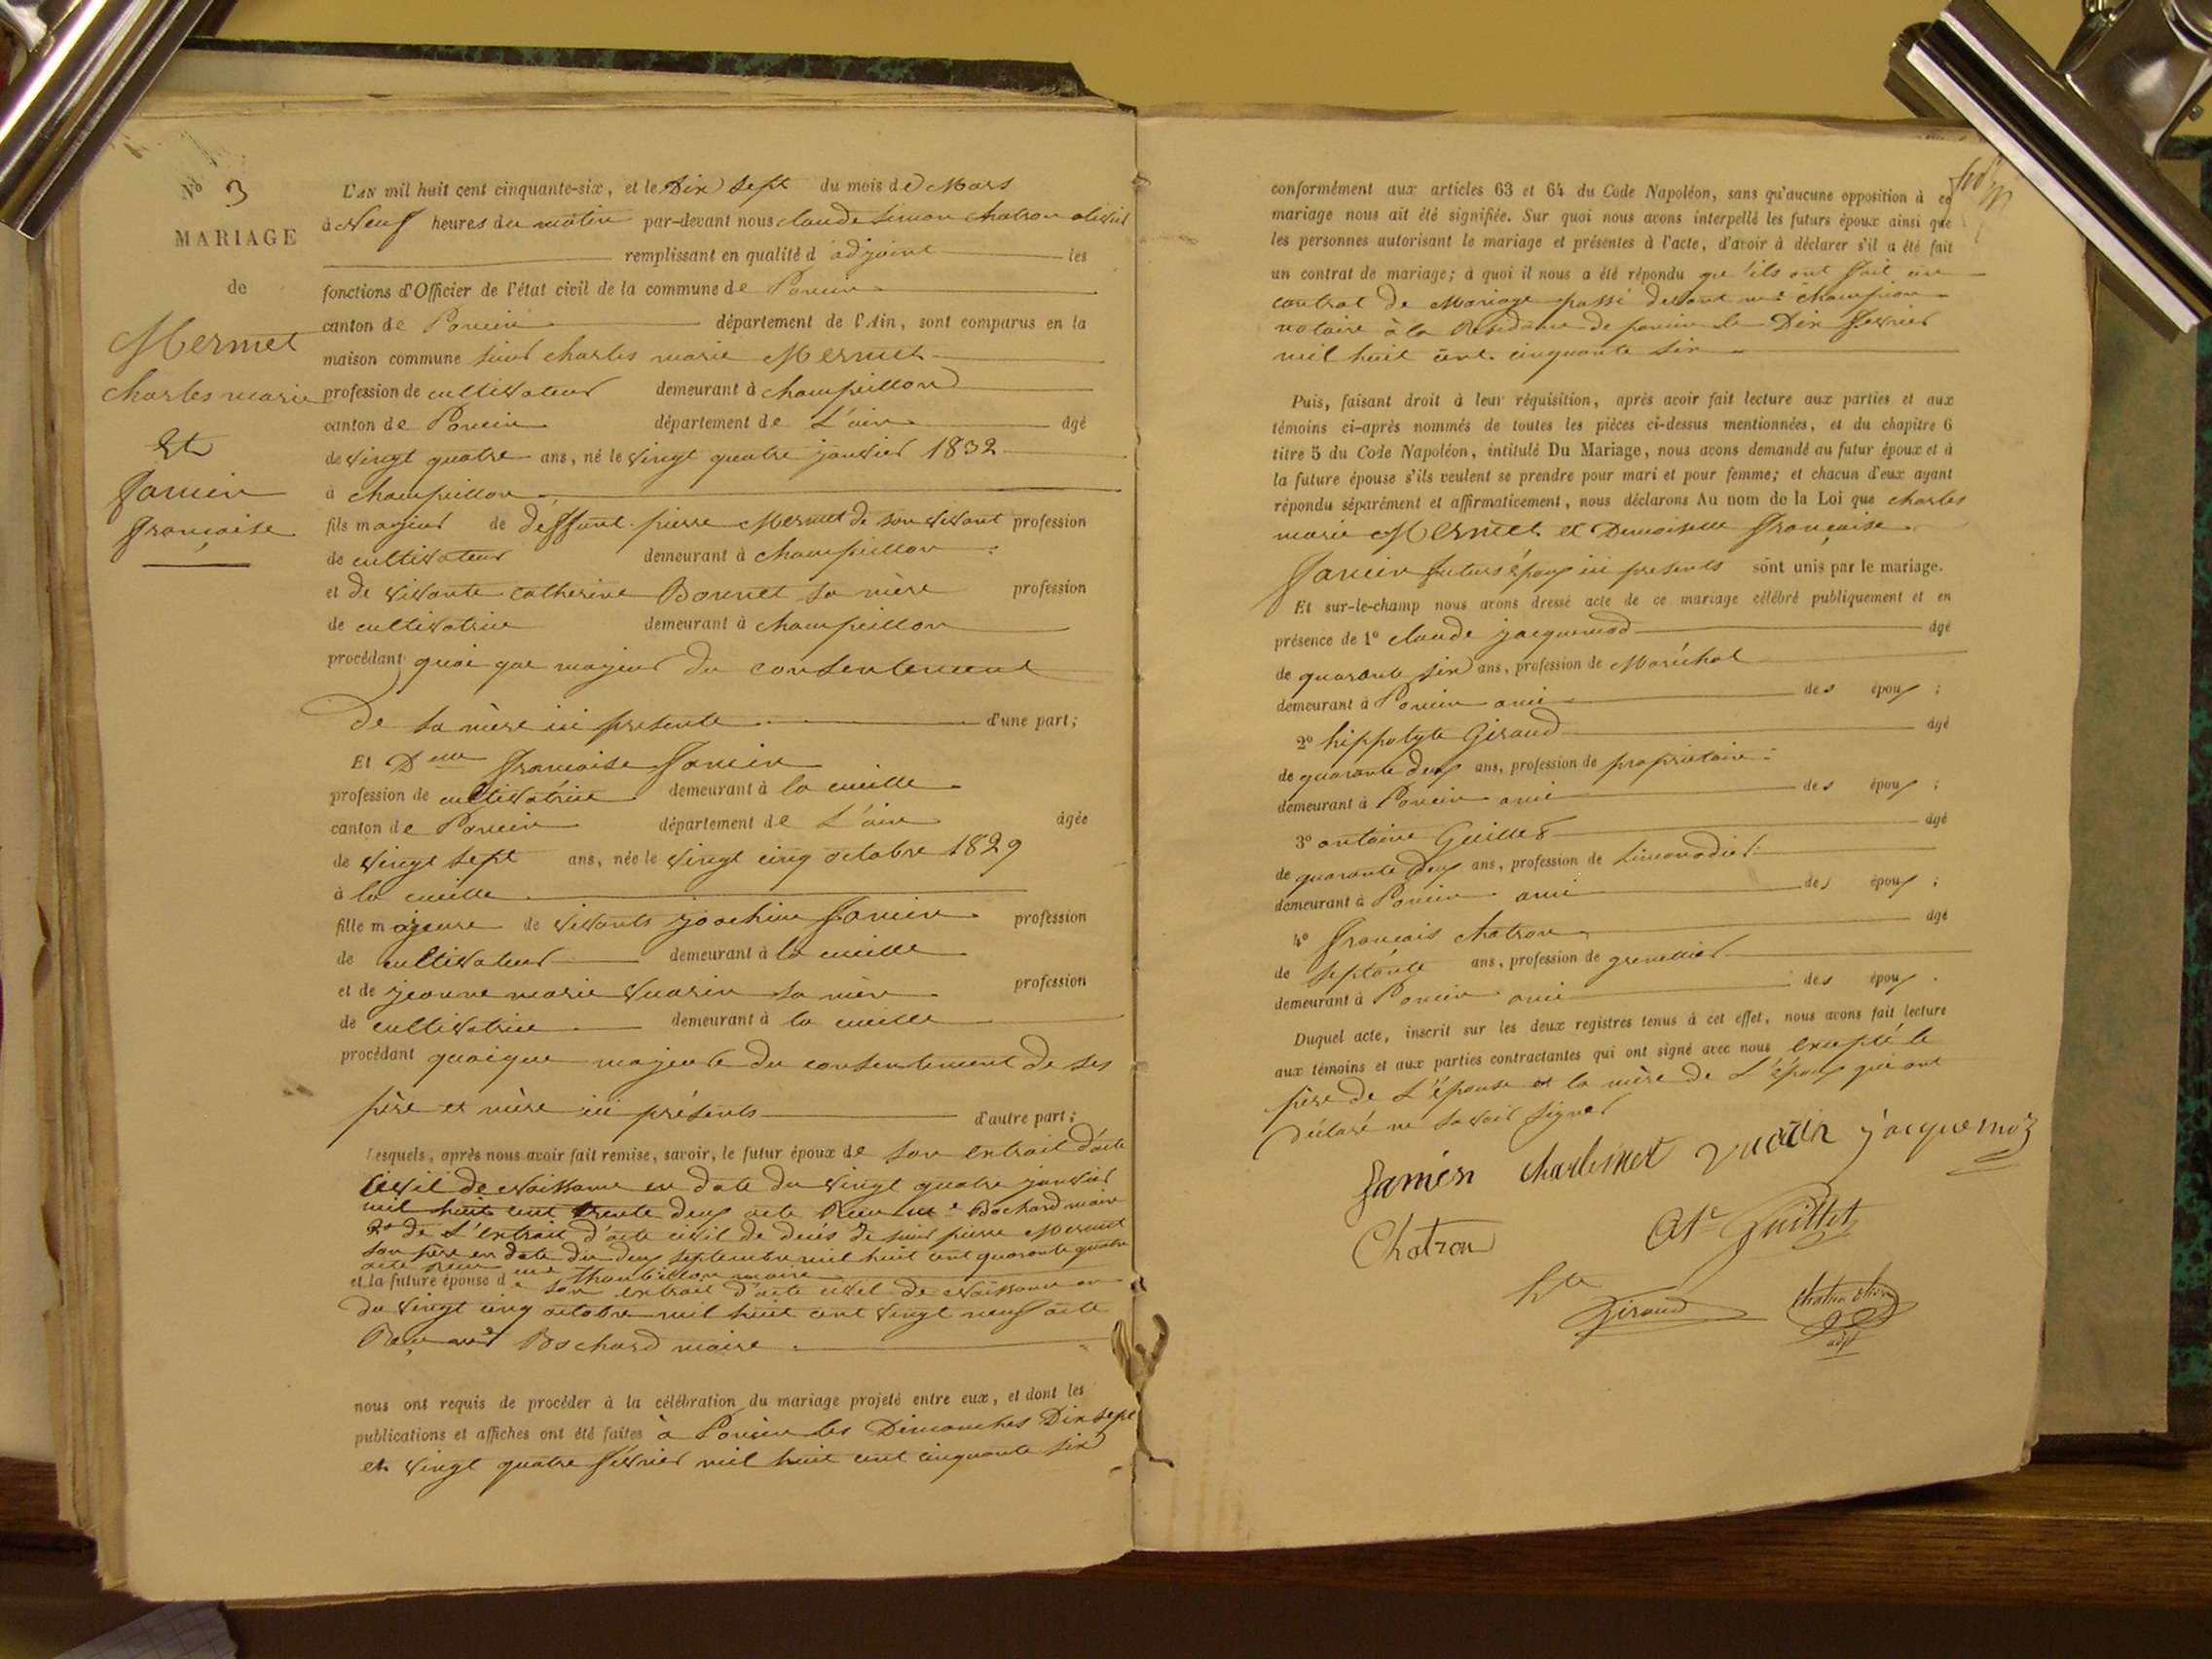 N° 3
MARIAGE
de
Mermet
charles marie
Et
Janin
françoise
L'AN mil huit cent cinquante-six, et le Dix sept du mois de Mars
à Neuf heures du matin par-devant nous claude simon chatron olivier
remplissant en qualité d'adjoint les
fonctions d'Officier de l'état civil de la commune de Poncin
canton de Poncin département de l'Ain, sont comparus en la
maison commune sieur charles marie Mermet
profession de cultivateur demeurant à champeillon
canton de Poncin département de L'ain âgé
de vingt quatre ans, né le vingt quatre janvier 1832
à champeillon
fils majeur de deffunt pierre Mermet de son vivant profession
de cultivateur demeurant à champeillon
et de vivante catherine Bonnet sa mère profession
de cultivatrice demeurant à champeillon
procédant quoi que majeur du consentement
de sa mère ici presente d'une part;
Et Delle françoise Janin
profession de cultivatrice demeurant à la cueille
canton de Poncin département de L'ain âgée
de vingt sept ans, née le vingt cinq octobre 1829
à la cueille
fille majeure de vivants joachim Janin profession
de cultivateur demeurant à la cueille
et de jeanne marie Vuarin sa mère profession
de cultivatrice demeurant à la cueille
procédant quoique majeure du consentement de ses
père et mère ici présents d'autre part;
Lesquels, après nous avoir fait remise, savoir, le futur époux de son extrait d'acte
civil de Naissance en date du vingt quatre janvier
mil huit cent trente deux acte Reçu me Bochard maire
2° de L'extrait d'acte civil de decés de sieur pierre Mermet
son père en date du deux septembre mil huit cent quarante quatre
acte Reçu me maire
et la future épouse de son extrait d'acte civil de Naissance en
du vingt cinq octobre mil huit cent vingt neuf acte
Reçu me Bochard maire
nous ont requis de procéder à la célébration du mariage projeté entre eux, et dont les
publications et affiches ont été faites à Poncin les Dimanches Dix sept
et vingt quatre février mil huit cent cinquante six
conformément aux articles 63 et 64 du Code Napoléon, sans qu'aucune opposition à ce
mariage nous ait été signifiée. Sur quoi nous avons interpellé les futurs époux ainsi que
les personnes autorisant le mariage et présentes à l'acte, d'avoir à déclarer s'il a été fait
un contrat de mariage; à quoi il nous a été répondu qu'ils ont fait un
contrat de Mariage passé devant me champion
notaire à la Residance de poncin le Dix fevrier
mil huit cent cinquante six
Puis, faisant droit à leur réquisition, après avoir fait lecture aux parties et aux
témoins ci-après nommés de toutes les pièces ci-dessus mentionnées, et du chapitre 6
titre 5 du Code Napoléon, intitulé Du Mariage, nous avons demandé au futur époux et à
la future épouse s'ils veulent se prendre pour mari et pour femme; et chacun d'eux ayant
répondu séparément et affirmativement, nous déclarons Au nom de la Loi que charles
marie Mermet et Demoiselle françoise
Janin futurs époux ici presents sont unis par le mariage.
Et sur-le-champ nous avons dressé acte de ce mariage célébré publiquement et en
présence de 1° claude jacquemod âgé
de quarante six ans, profession de Maréchal
demeurant à Poncin ami des époux ;
2° hippolyte Giraud âgé
de quarante deux ans, profession de propriétaire
demeurant à Poncin ami des époux ;
3° antoine Guillet âgé
de quarante deux ans, profession de Limonadier
demeurant à Poncin ami des époux ;
4° françois chatron âgé
de septante ans, profession de grenettier
demeurant à Poncin ami des époux .
Duquel acte, inscrit sur les deux registres tenus à cet effet, nous avons fait lecture
aux témoins et aux parties contractantes qui ont signé avec nous excepté le
père de L'épouse et la mère de L'époux qui ont
déclaré ne savoir signer
Janien charlesmet vuarin jacquemoz
Chatron Ate Guillet
Hte
Giraud
chatron olivier
adjt